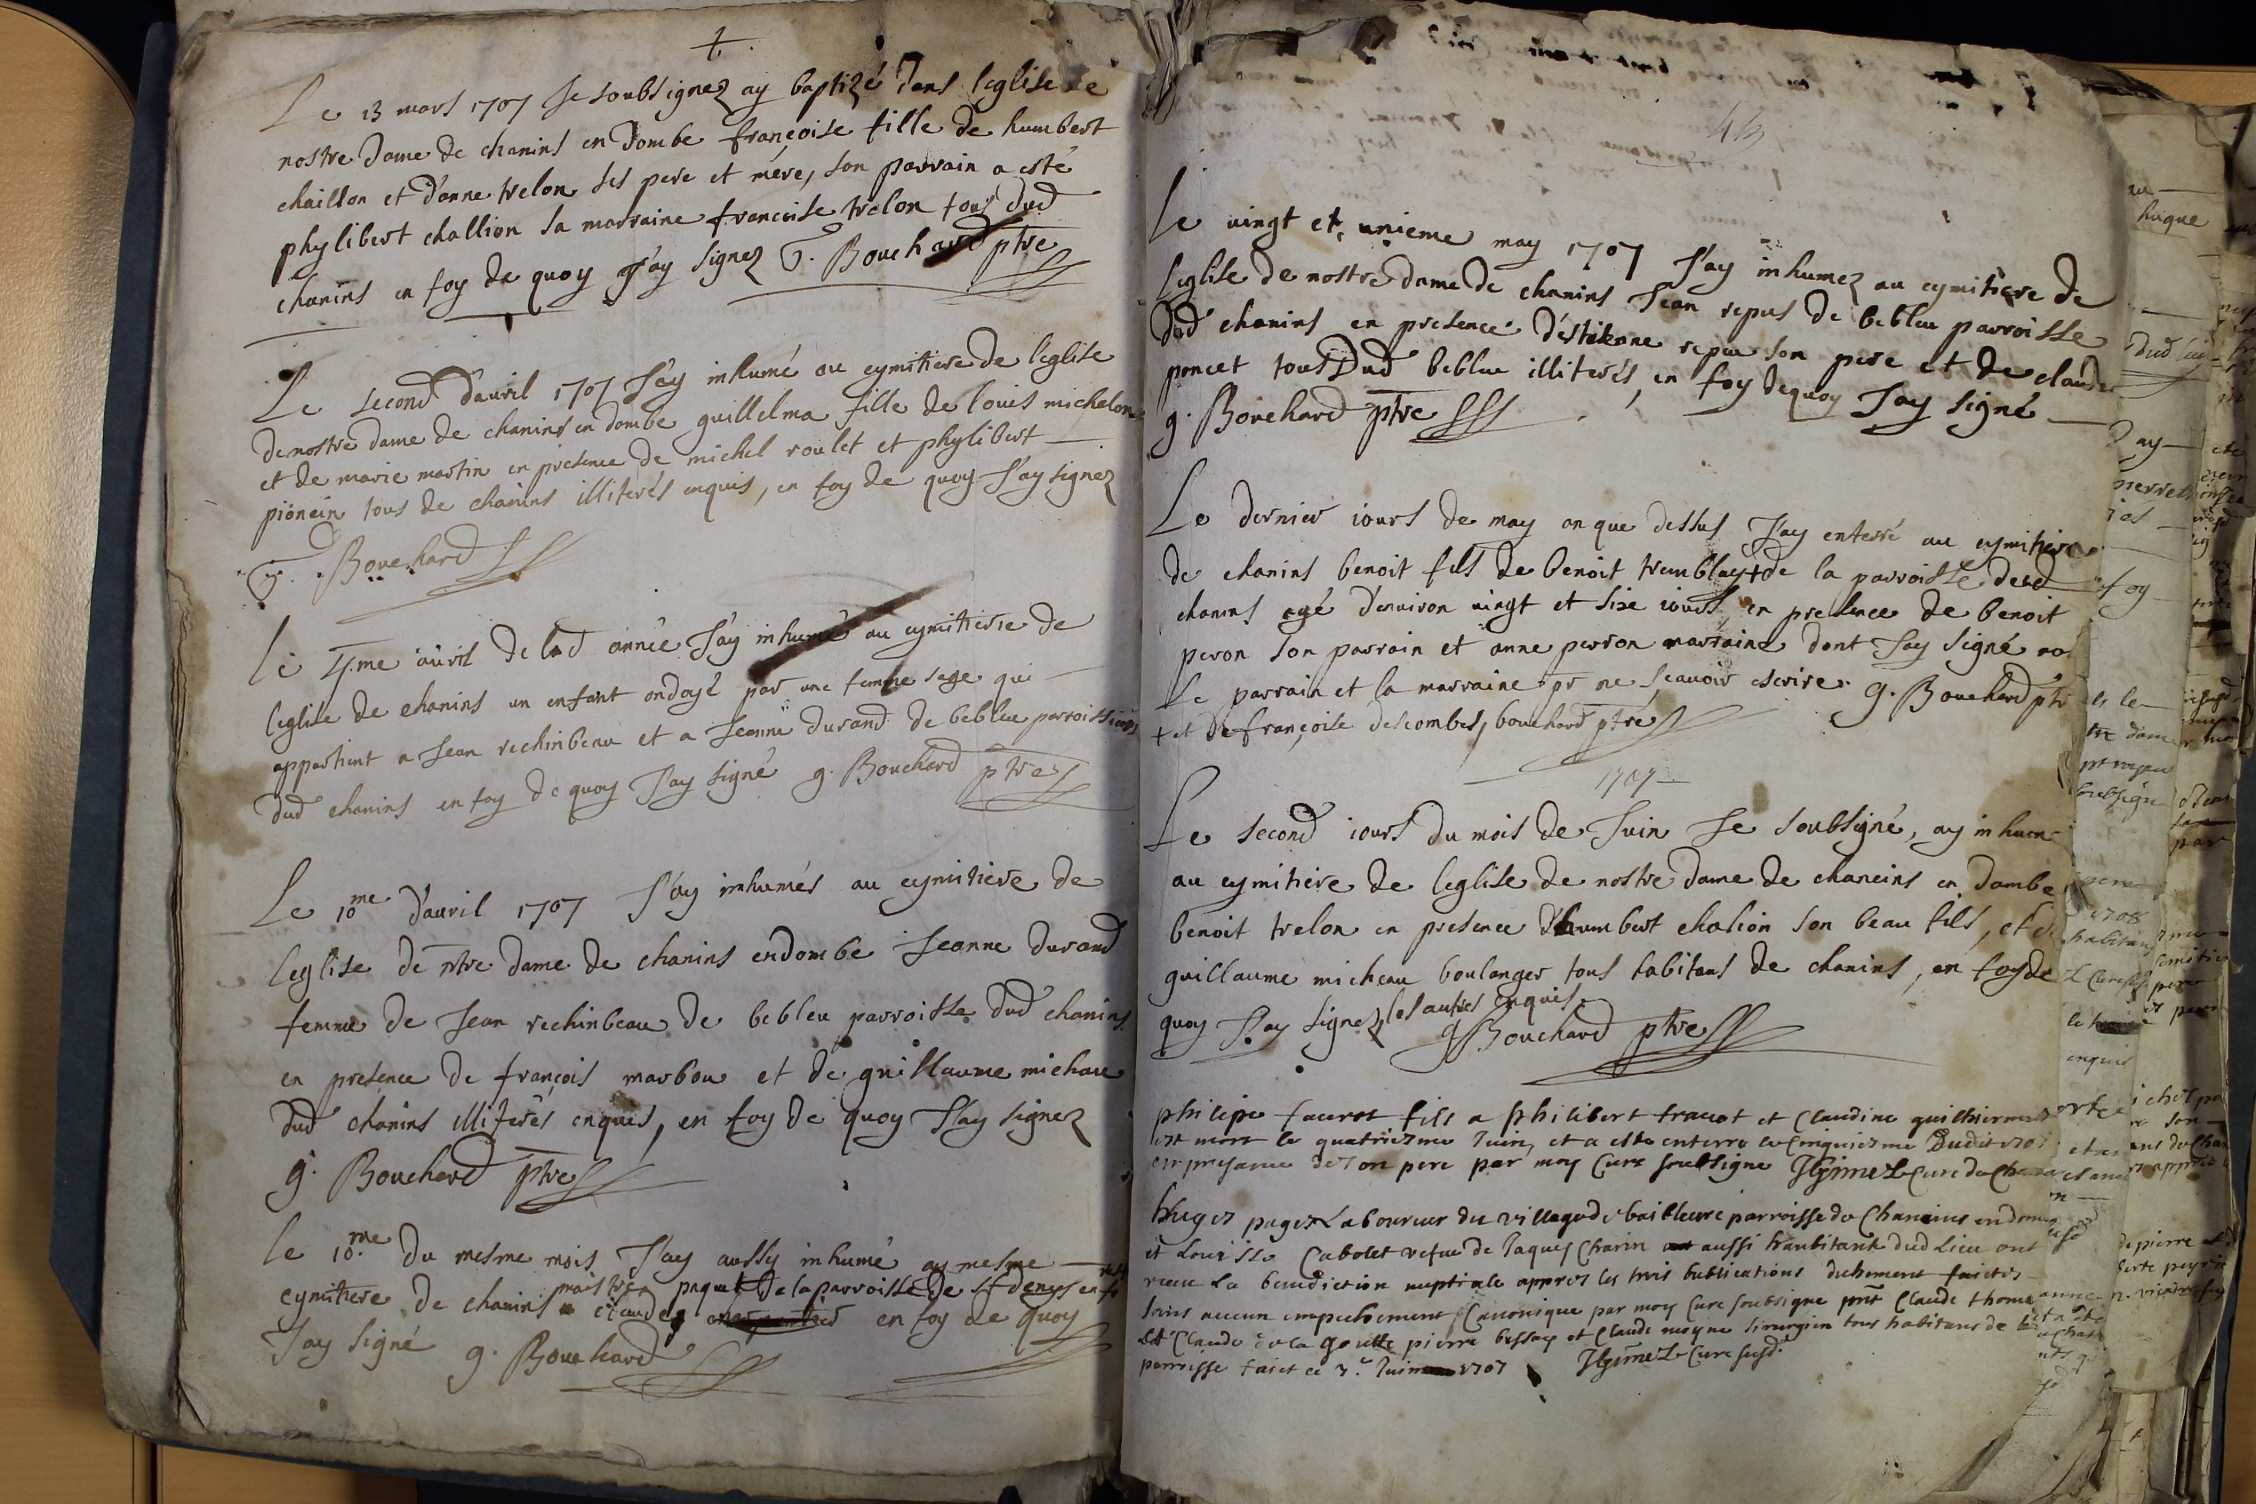 +
Le 13 mars 1707 Je soubsignez ay baptizé dans leglise de
nostre dame de chanins en dombe françoise fille de humbert
chaillon et d'anne trelon ses pere et mere, son parrain a esté
phylibert challion sa marraine francoise trelon tous dud
chanins en foy de quoy j'ay signez g. Bouchard ptre
Le second d'auril 1707 J'ay inhumé au cymitiere de l'eglise
de nostre dame de chanins en dombe guillelma fille de louis michelon
et de marie martin en presence de michel roulet et phylibert
pionein tous de chanins illiterés enquis, en foy de quoy J'ay signez
g. Bouchard
le 4.me auril de lad année J'ay inhumé au cymitiere de
leglise de chanins un enfant ondoyé par une femme sage qui
appartient a Jean rechinbeau et a Jeanne durand de bebleu parroissiens
dud chanins en foy de quoy J'ay signé g. Bouchard ptre
Le 10me d'auril 1707 J'ay inhumés au cymitiere de
leglise de ntre dame de chanins en dombe Jeanne durand
femme de Jean rechinbeau de bebleu parroisse dud chanins
en presence de françois marbou et de guillaume michau
dud chanins illiterés enquis, en foy de quoy J'ay signez
g. Bouchard ptre
le 10.me du mesme mois J'ay aussy inhumé au mesme
cymitiere de chanins maistre claude paquet de la parroisse de st denys en foy de quoy
Jay signé g. Bouchard
43
le uingt et unieme may 1707 J'ay inhumez au cymitiere de
leglise de nostre dame de chanins Jean repus de bebleu parroisse
dud chanins en presence d'estienne repus son pere et de claude
poncet tous dud bebleu illiterés, en foy de quoy Jay signé
g. Bouchard ptre
Le dernier iours de may an que dessus J'ay enterré au cymitiere
de chanins benoit fils de benoit tremblay + de la parroisse dud
chanins agé d'enuiron uingt et sixe iours, en presence de benoit
peron son parrain et anne perron marraine dont Jay signé
Le parrain et la marraine pr ne sçauoir escrire g. Bouchard ptr
+ et de françoise descombes, bouchard ptre
1707
Le second iours du mois de Juin Je soubsigné, ay inhum
au cymitiere de leglise de nostre dame de chaneins en dambe
benoit trelon en presence d'humbert chalion son beau fils, et de
guillaume micheau boulanger tous habitans de chanins, en foy de
quoy J'ay signez, les autres enquis. g Bouchard ptre
philipe fauret fils a philibert frauot et Claudine guilhiermet
est mort le quatriesme Juin, et a este enterre le Cinquiesme Dudit 1707
en presance de son pere par moy Cure soubsigne Cure de Chanein
Huges pages Laboureur du village de bailleure parroisse de Chaneins en dombe
et Louisse Cabolet vefue de Jaques Charin aussi haubitante dud Lieu ont
receu La benediction nuptiale appres les trois bublications duhement faictes
sans aucun empechement Canonique par moy Cure soubsigne pnt Claude thome
Claude de la goutte pierre bessay et Claude moyne sirurgien tous habitans de la
parroisse faict ce 7e Juin 1707 Cure susd.